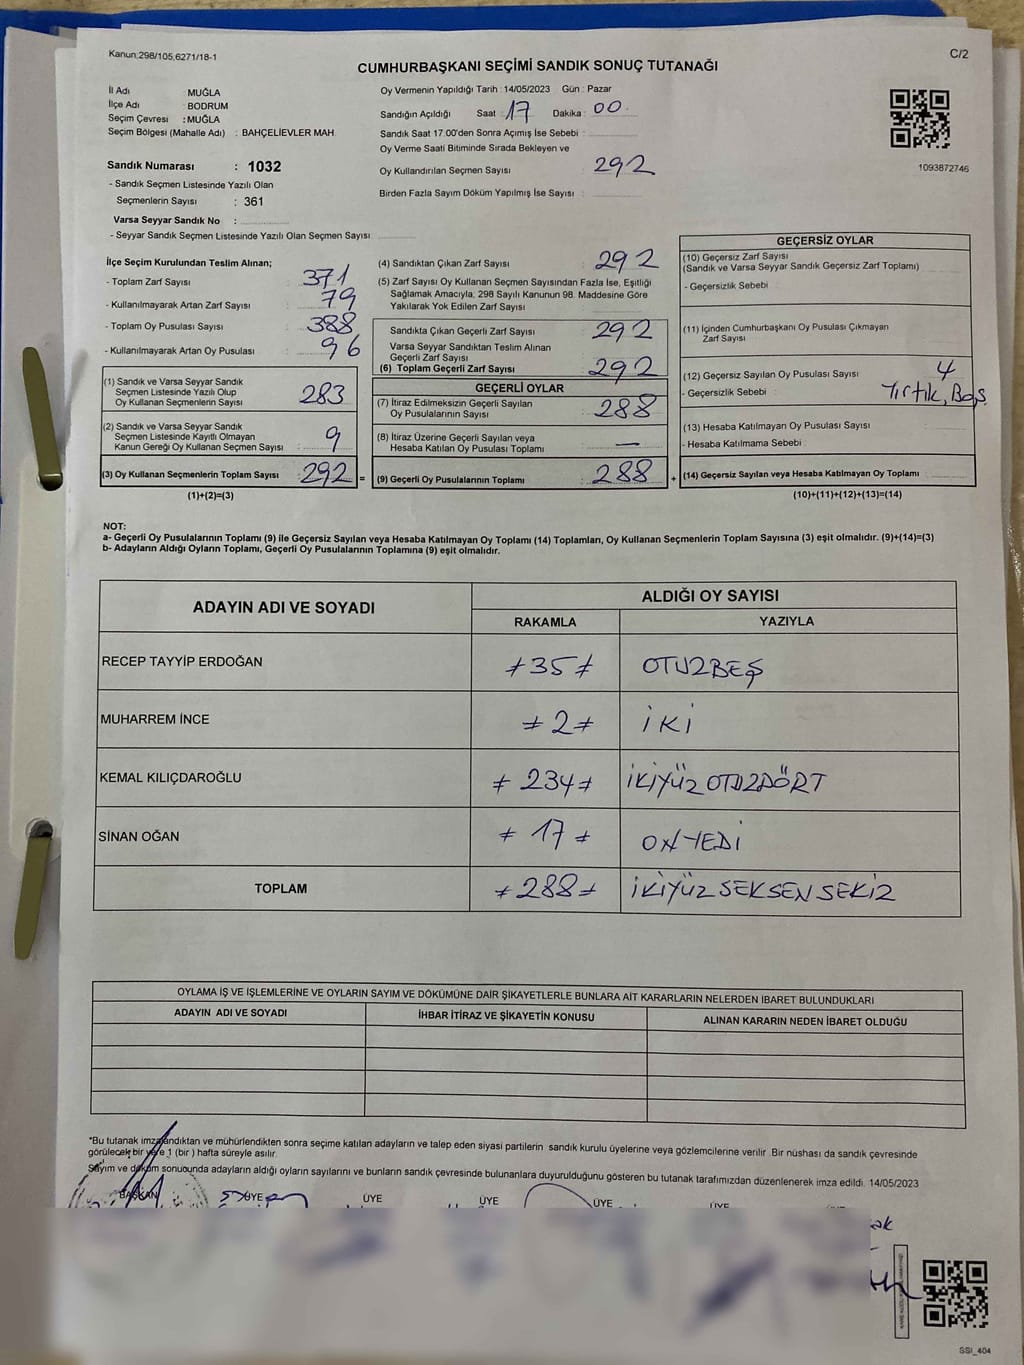 Kanun:298/105,6271/18-1
C/2
CUMHURBAŞKANI SEÇİMİ SANDIK SONUÇ TUTANAĞI
İl Adı : MUĞLA
İlçe Adı : BODRUM
Seçim Çevresi : MUĞLA
Seçim Bölgesi (Mahalle Adı) : BAHÇELİEVLER MAH
Sandık Numarası : 1032
- Sandık Seçmen Listesinde Yazılı Olan
Seçmenlerin Sayısı : 361
Varsa Seyyar Sandık No :
- Seyyar Sandık Seçmen Listesinde Yazılı Olan Seçmen Sayısı
Oy Vermenin Yapıldığı Tarih : 14/05/2023 Gün : Pazar
Sandığın Açıldığı Saat : 17 Dakika : 00
Sandık Saat 17.00'den Sonra Açımış İse Sebebi :
Oy Verme Saati Bitiminde Sırada Bekleyen ve
Oy Kullandırılan Seçmen Sayısı : 292
Birden Fazla Sayım Döküm Yapılmış İse Sayısı :
1093872746
İlçe Seçim Kurulundan Teslim Alınan;
- Toplam Zarf Sayısı : 371
- Kullanılmayarak Artan Zarf Sayısı : 79
- Toplam Oy Pusulası Sayısı : 388
- Kullanılmayarak Artan Oy Pusulası : 96
(1) Sandık ve Varsa Seyyar Sandık
Seçmen Listesinde Yazılı Olup
Oy Kullanan Seçmenlerin Sayısı : 283
(2) Sandık ve Varsa Seyyar Sandık
Seçmen Listesinde Kayıtlı Olmayan
Kanun Gereği Oy Kullanan Seçmen Sayısı : 9
(3) Oy Kullanan Seçmenlerin Toplam Sayısı : 292 =
(1)+(2)=(3)
(4) Sandıktan Çıkan Zarf Sayısı : 292
(5) Zarf Sayısı Oy Kullanan Seçmen Sayısından Fazla İse, Eşitliği
Sağlamak Amacıyla; 298 Sayılı Kanunun 98. Maddesine Göre
Yakılarak Yok Edilen Zarf Sayısı :
Sandıkta Çıkan Geçerli Zarf Sayısı : 292
Varsa Seyyar Sandıktan Teslim Alınan
Geçerli Zarf Sayısı
(6) Toplam Geçerli Zarf Sayısı : 292
GEÇERLİ OYLAR
(7) İtiraz Edilmeksizin Geçerli Sayılan
Oy Pusulalarının Sayısı : 288
(8) İtiraz Üzerine Geçerli Sayılan veya
Hesaba Katılan Oy Pusulası Toplamı : —
(9) Geçerli Oy Pusulalarının Toplamı : 288 +
GEÇERSİZ OYLAR
(10) Geçersiz Zarf Sayısı
(Sandık ve Varsa Seyyar Sandık Geçersiz Zarf Toplamı)
- Geçersizlik Sebebi :
(11) İçinden Cumhurbaşkanı Oy Pusulası Çıkmayan
Zarf Sayısı
(12) Geçersiz Sayılan Oy Pusulası Sayısı : 4
- Geçersizlik Sebebi : Yırtık, Boş
(13) Hesaba Katılmayan Oy Pusulası Sayısı :
- Hesaba Katılmama Sebebi :
(14) Geçersiz Sayılan veya Hesaba Katılmayan Oy Toplamı
(10)+(11)+(12)+(13)=(14)
NOT:
a- Geçerli Oy Pusulalarının Toplamı (9) ile Geçersiz Sayılan veya Hesaba Katılmayan Oy Toplamı (14) Toplamları, Oy Kullanan Seçmenlerin Toplam Sayısına (3) eşit olmalıdır. (9)+(14)=(3)
b- Adayların Aldığı Oyların Toplamı, Geçerli Oy Pusulalarının Toplamına (9) eşit olmalıdır.
ADAYIN ADI VE SOYADI ALDIĞI OY SAYISI
RAKAMLA YAZIYLA
RECEP TAYYİP ERDOĞAN ≠35≠ OTUZBEŞ
MUHARREM İNCE ≠2≠ İKİ
KEMAL KILIÇDAROĞLU ≠234≠ İKİYÜZ OTUZDÖRT
SİNAN OĞAN ≠17≠ ONYEDİ
TOPLAM ≠288≠ İKİYÜZ SEKSEN SEKİZ
OYLAMA İŞ VE İŞLEMLERİNE VE OYLARIN SAYIM VE DÖKÜMÜNE DAİR ŞİKAYETLERLE BUNLARA AİT KARARLARIN NELERDEN İBARET BULUNDUKLARI
ADAYIN ADI VE SOYADI İHBAR İTİRAZ VE ŞİKAYETİN KONUSU ALINAN KARARIN NEDEN İBARET OLDUĞU
*Bu tutanak imzalandıktan ve mühürlendikten sonra seçime katılan adayların ve talep eden siyasi partilerin sandık kurulu üyelerine veya gözlemcilerine verilir .Bir nüshası da sandık çevresinde
görülecek bir yere 1 (bir ) hafta süreyle asılır.
Sayım ve döküm sonucunda adayların aldığı oyların sayılarını ve bunların sandık çevresinde bulunanlara duyurulduğunu gösteren bu tutanak tarafımızdan düzenlenerek imza edildi. 14/05/2023
BAŞKAN ÜYE ÜYE ÜYE ÜYE ÜYE
SSİ_404